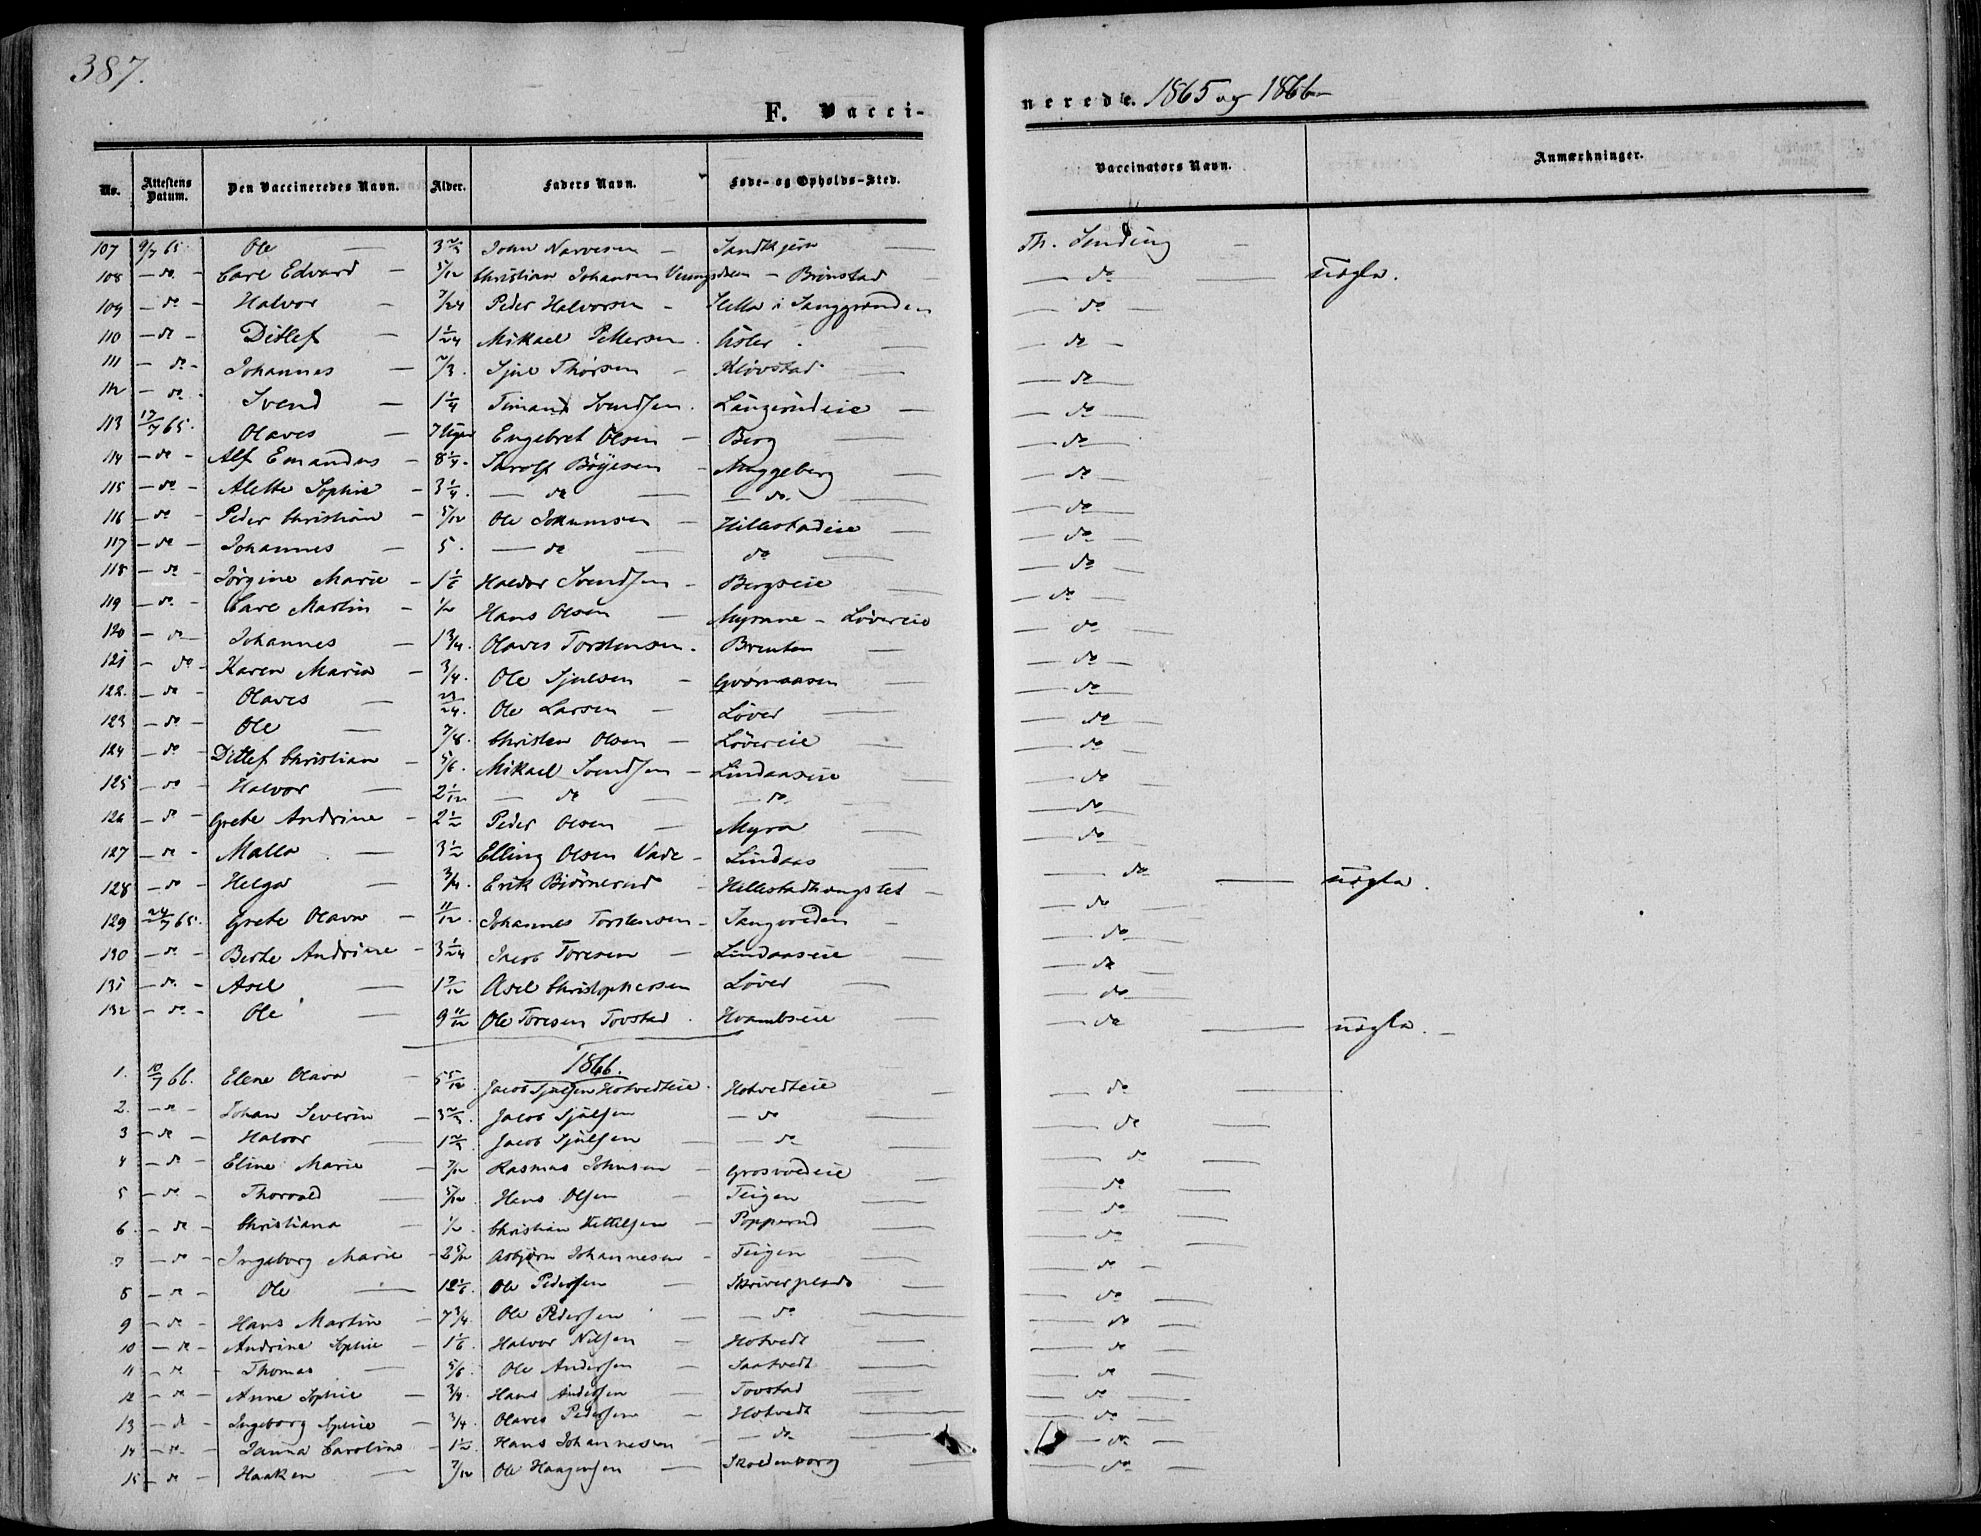 387.
F. Vacci- nerede. 1865 og 1866
No. | Attestens Datum. | Den Vaccineredes Navn. | Alder. | Faders Navn. | Føde- og Opholds-Sted. | Vaccinators Navn. | Anmærkninger.
107 | 9/7 65. | Ole — | 3 2/3 | John Narvesen — | Sandkjern — | Th. Sending —
108 | — do — | Carl Edvard — | 5/12 | Christian Johansen — | Brønstad — | — do — | uægte.
109 | — do | Halvor — | 7/24 | Peder Halvorsen — | Hella i | — do —
110 | — do — | Ditlef — | 1 1/24 | Mikael Pettersen. | — | — do —
111 | — do — | Johannes — | 2/3. | Sjul Thorsen — | Kløvstad — | — do —
112 | — do — | Svend — | 1 1/4 | Svendsen. | Langerudeie — | — do —
113 | 17/7 65. | Olaves — | 7 Uger | Engebret Olsen — | Berg — | — do —
114 | — do — | Alf Emandus — | 8 1/4. | Bøyesen — | Muggeberg — | — do —
115 | — do — | Alette Sophie — | 3 1/4. | — do — | — do. — | — do —
116 | — do — | Peder Christian — | 5/12 | Ole Johannsen — | Hillestadeie — | — do —
117 | — do — | Johannes — | 5. | — do — | do — | — do —
118 | — do — | Jørgine Marie — | 1 1/6 | Haldor Svendsen — | Bergseie — | — do —
119 | — do — | Carl Martin — | 1/2 | Hans Olsen — | Myrane - Løvereie | — do —
120 | — do — | Johannes — | 1 3/4. | Olaves Torstensen. | Brenten — | — do —
121 | — do — | Karen Maria — | 3/4. | Ole Sjulsen — | — | — do —
122. | — do — | Olaves — | 23/24. | Ole Larsen — | Løver — | — do —
123 | — do — | Ole — | 7/8. | Christen Olsen — | Løvereie — | — do —
124 | — do — | Ditlef Christian — | 5/6. | Mikael Svendsen — | Lindaaseie — | — do —
125 | — do — | Halvor — | 2 1/12 | — do — | — do. — | — do —
126 | — do — | Grete Andrine — | 2 1/2 | Peder Olsen — | Myra — | — do —
127 | — do — | Malla — | 3 1/2 | Elling Olsen — | Lindaas — | — do —
128 | — do — | Helga — | 3/4. | Erik Biørnerud — | — | — do — | uægte.
129 | 24/7 65. | Grete Olava — | 11/12 | Johannes Torstensen — | — | — do —
130 | — do — | Berte Andrine — | 3 1/24 | Jacob Toresen — | Lindaaseie — | — do —
131 | — do — | Axel — | 1 7/12 | Axel Christophersen | Løver — | — do —
132 | — do — | Ole — | 9 11/12 | Ole Toresen Tovstad. | Hvambseie — | — do — | uægte. —
1866.
1. | 10/7 66. | Elene Olava — | 5 5/12 | Jacob Sjulsen Hotvedteie. | Hotvedteie — | do —
2. | — do — | Johan Severin — | 3 2/3. | Jacob Sjulsen | — do — | — do —
3 | — do — | Halvor — | 1 2/3. | Jacob Sjulsen — | — do — | — do —
4 | — do — | Eline Marie — | 7/12 | Rasmus Johnsen — | Grosvoldeie — | — do —
5 | — do — | Thorvald — | 5/12. | Hans Olsen — | Teigen — | — do —
6. | — do — | Christiana — | 1/2 | Christian Kettilsen — | Popperud — | — do —
7 | — do — | Ingeborg Marie — | 2 5/12 | Asbjørn Johannesen — | Teigen — | — do —
8 | — do — | Ole — | 12 1/6. | Ole Pedersen — | Skriverplads — | — do —
9 | — do — | Hans Martin — | 7 3/4. | Ole Pedersen — | — do — | — do —
10 | — do — | Andrine Sophie — | 1 1/6 | Halvor Nilsen — | Hotvedt — | — do —
11 | — do | Thomas — | 5/6. | Ole Andersen — | Saatvedt — | — do —
12 | — do — | Anne Sophie — | 3/4. | Hans Andersen — | Tovstad — | — do —
13 | — do — | Ingeborg Sophie — | 3/4. | Olaves Pedersen — | Hotvedt — | — do —
14 | — do — | Janna Caroline — | 1 1/2. | Hans Johannesen — | — do — | — do —
15 | — do | Haaken — | 7/12 | Ole Haagensen — | Skoldenborg — | — do —